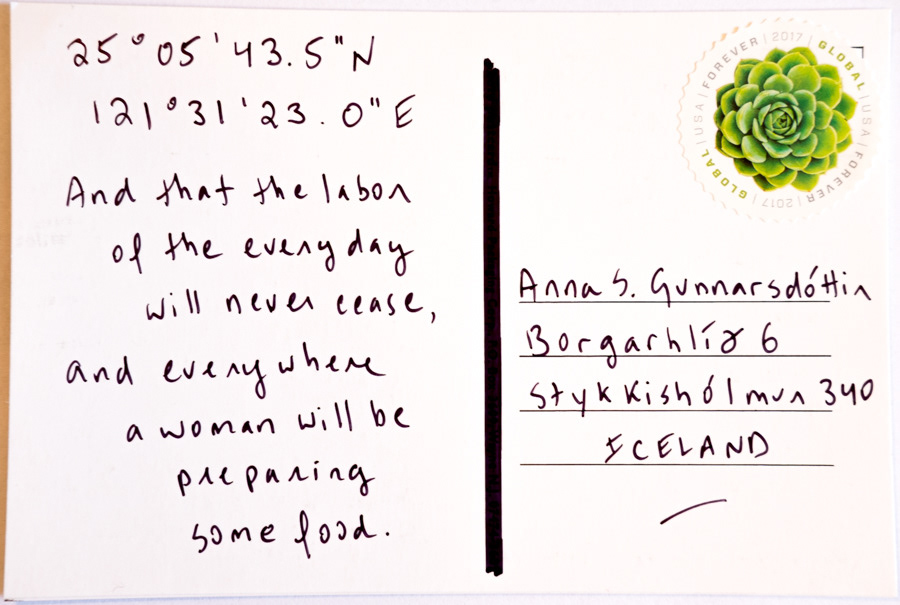 25°05'43.5"N
121°31'23.0"E
And that the labor
of the everyday
will never cease,
and everywhere
a woman will be
preparing
some food.
GLOBAL | USA | FOREVER | 2017 | GLOBAL | USA | FOREVER | 2017 |
Anna S. Gunnarsdóttir
Borgarhlíð 6
Stykkishólmur 340
ICELAND